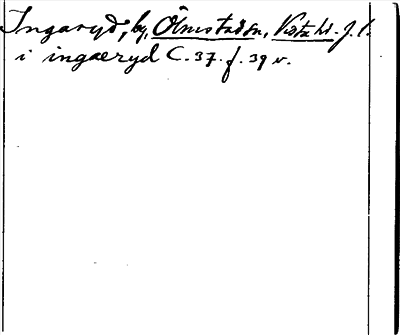 Ingaryd, by, Ölmstad sn, Vista hd. J. l.
i ingaeryd C. 37. f. 39 v.